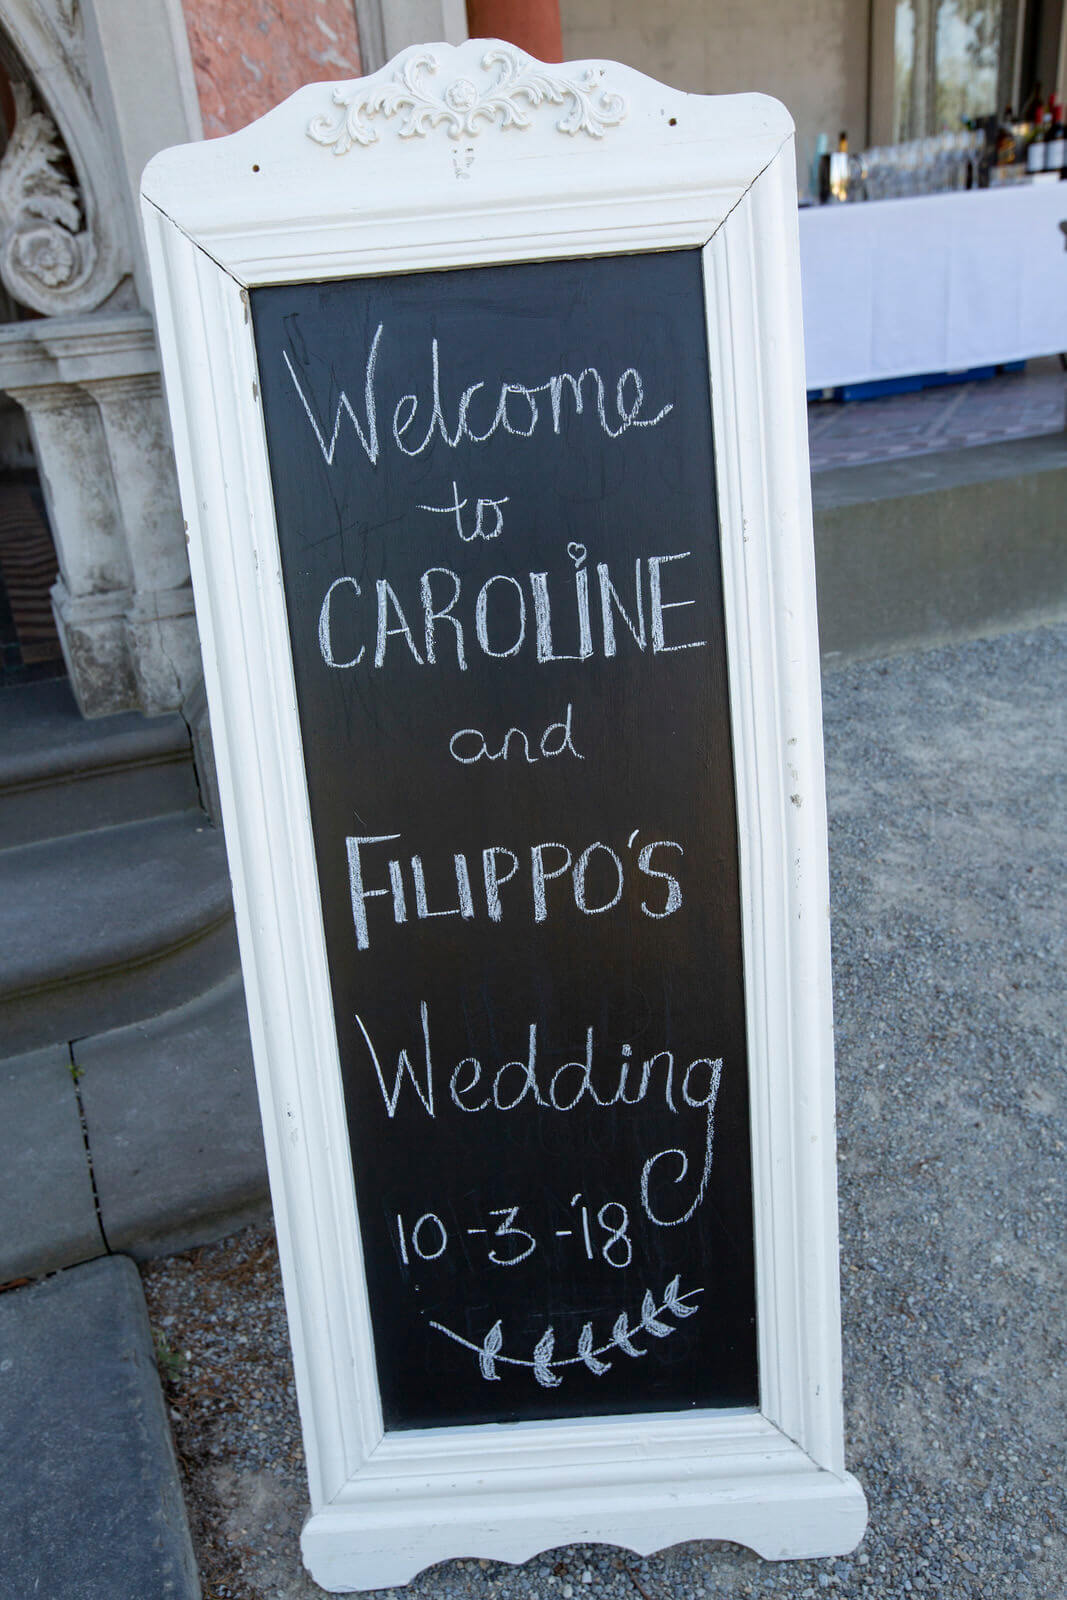 Welcome
to
CAROLINE
and
FILIPPO'S
Wedding
10-3-'18